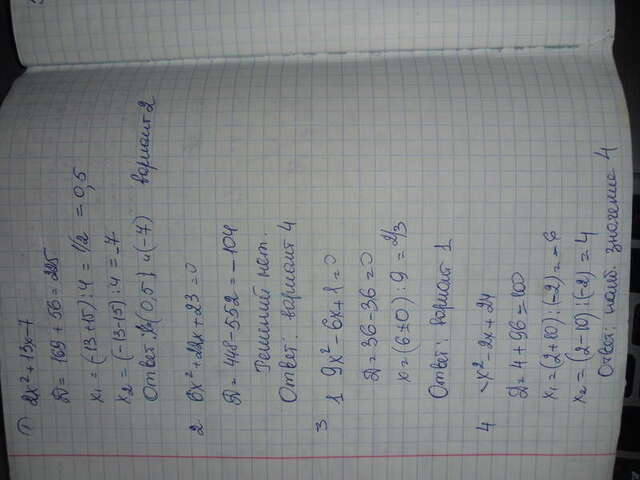 ① 2x²+13x-7
D= 169+56=225
x₁=(-13+15):4=1/2 =0,5
x₂=(-13-15):4=-7
Ответ: (0,5) и (-7) вариант 2
2 6x²+22x+23=0
D= 448-552=-104
Решений нет.
Ответ: вариант 4
3
1 9x²-6x+1=0
D=36-36=0
x=(6±0):9=2/3
Ответ: вариант 1
4 -x²-2x+24
D=4+96=100
x₁=(2+10):(-2)=-6
x₂=(2-10):(-2)=4
Ответ: наиб. значение 4